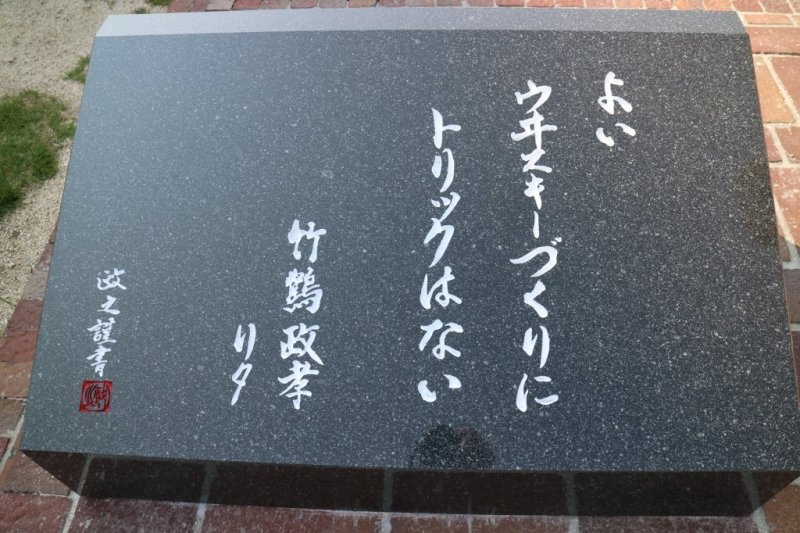 よい
ウヰスキーづくりに
トリックはない
竹鶴政孝
リタ
政之謹書